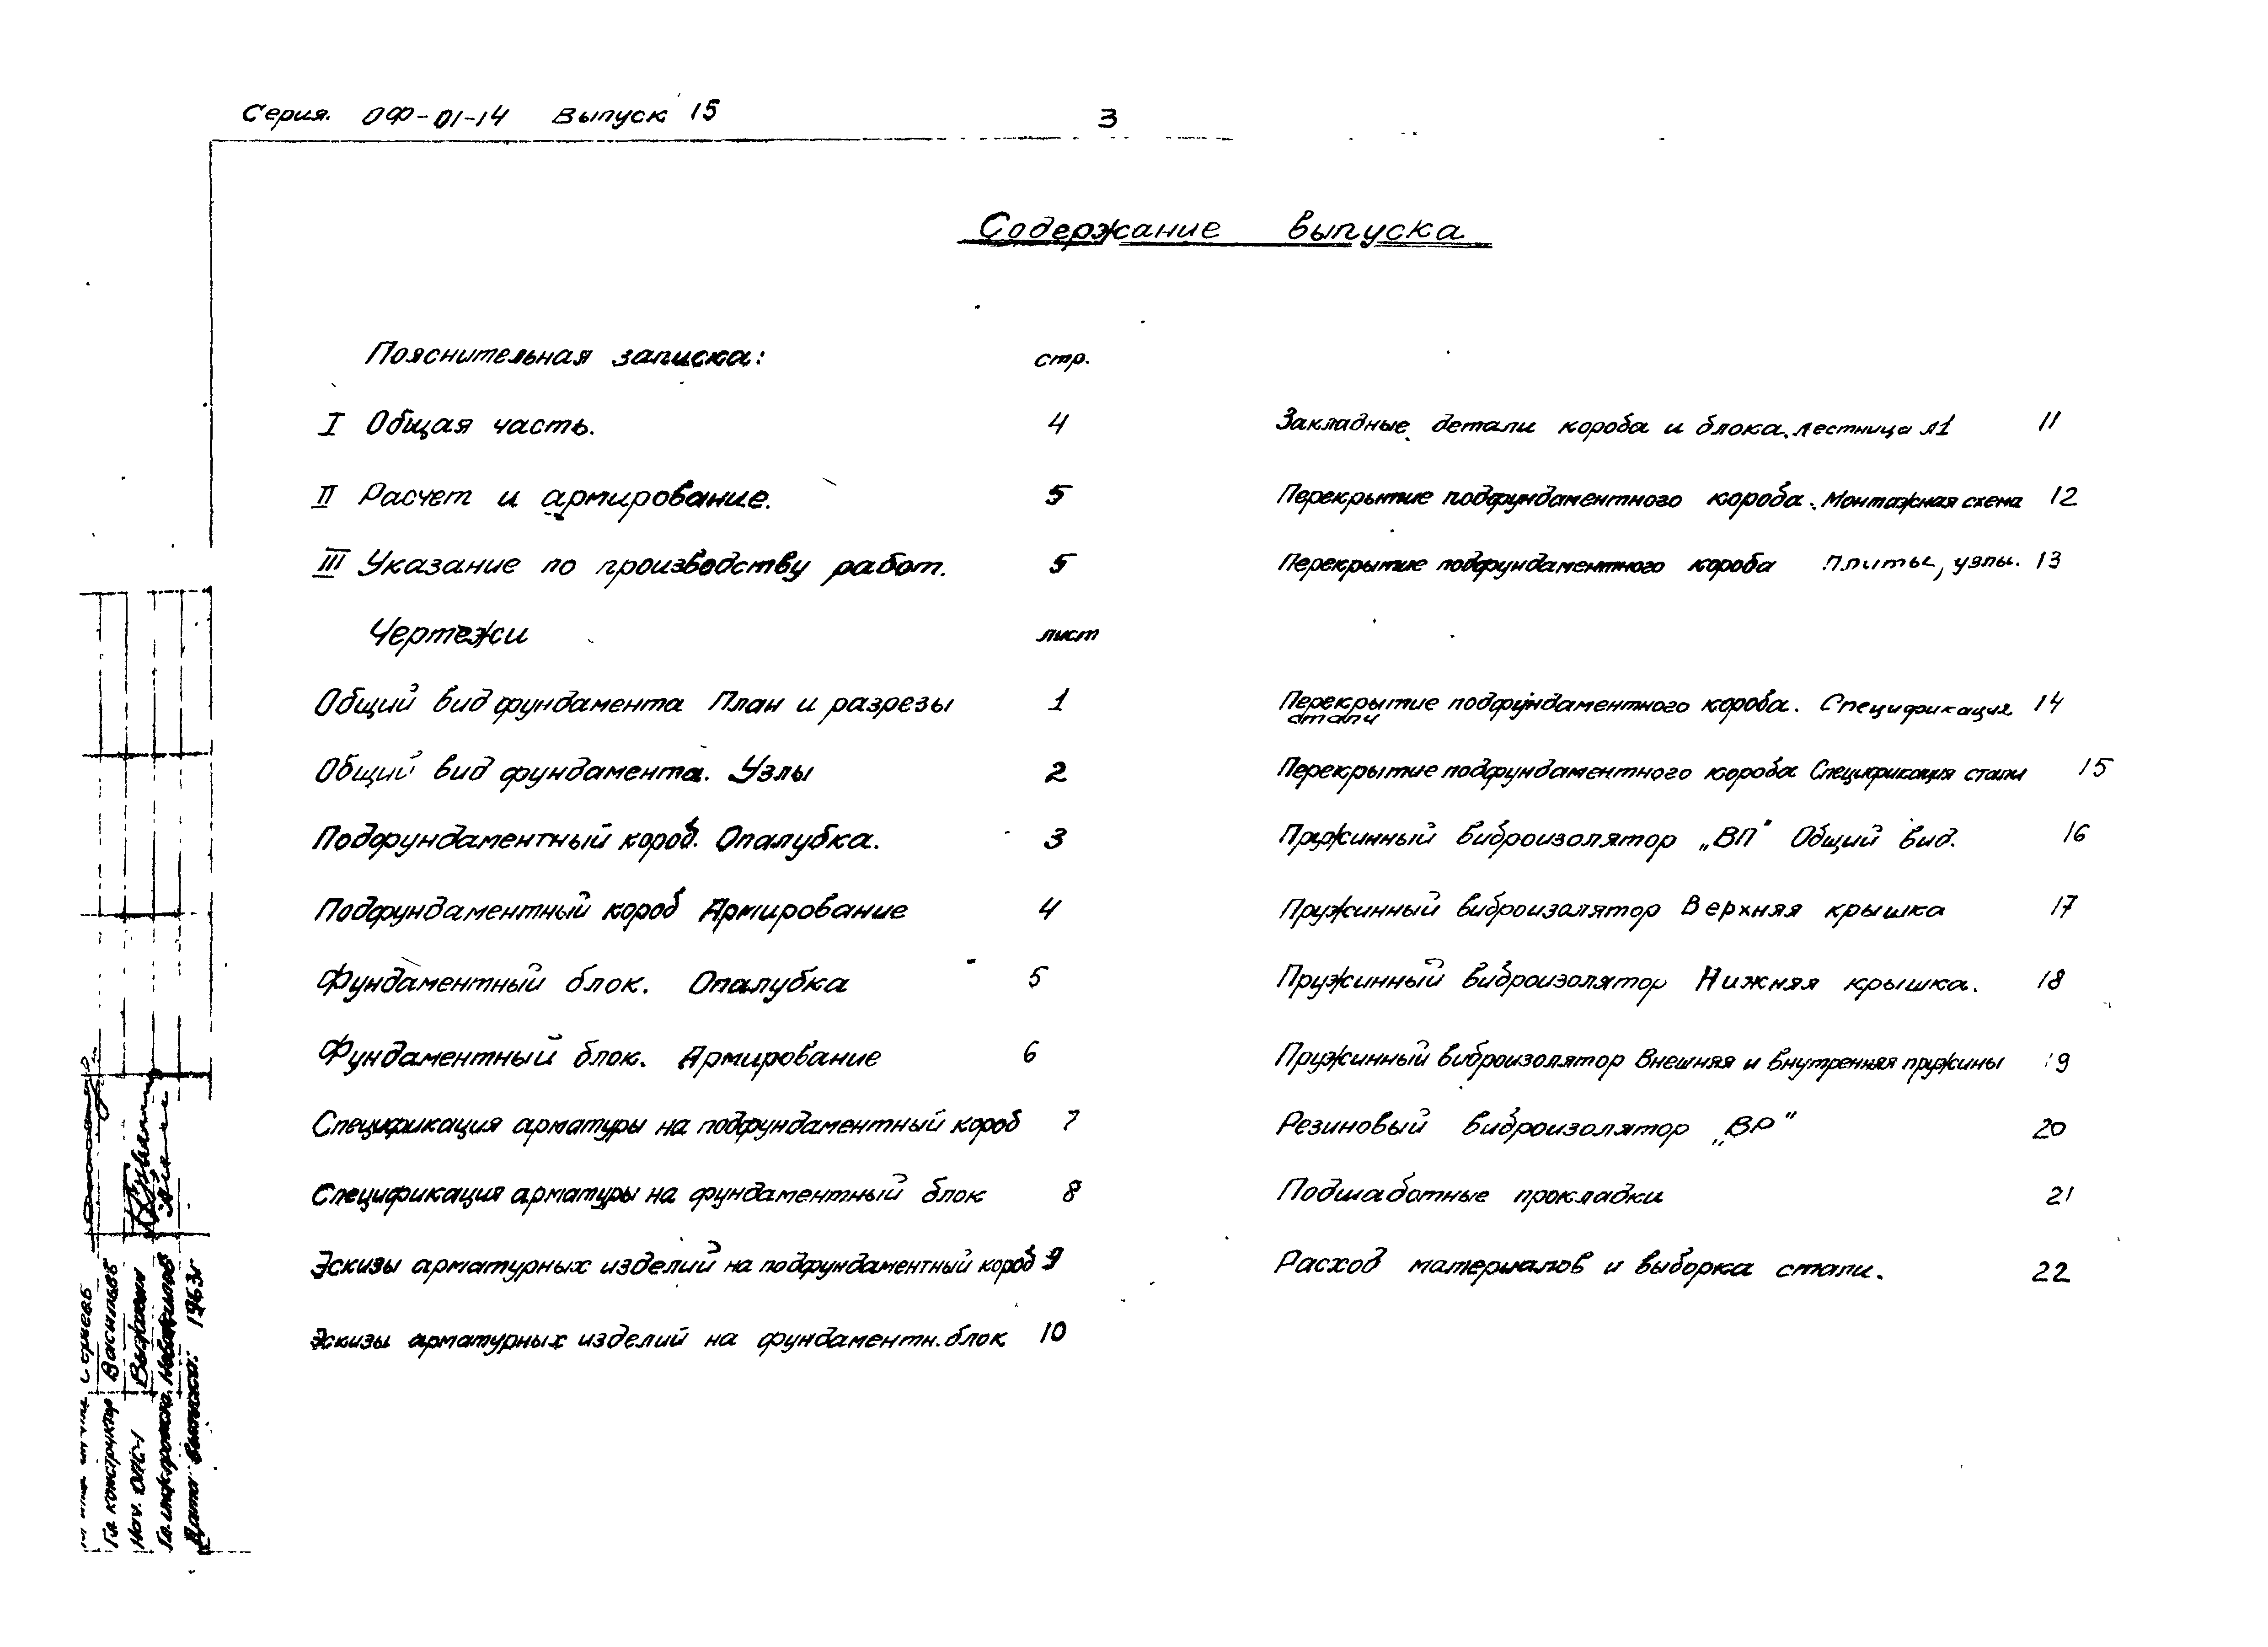 Серия. ОФ-01-14 Выпуск 15
3
Содержание выпуска
Пояснительная записка: стр.
I Общая часть. 4
II Расчет и армирование. 5
III Указание по производству работ. 5
Чертежи лист
Общий вид фундамента План и разрезы 1
Общий вид фундамента. Узлы 2
Подфундаментный короб. Опалубка. 3
Подфундаментный короб Армирование 4
Фундаментный блок. Опалубка 5
Фундаментный блок. Армирование 6
Спецификация арматуры на подфундаментный короб 7
Спецификация арматуры на фундаментный блок 8
Эскизы арматурных изделий на подфундаментный короб 9
Эскизы арматурных изделий на фундаментн. блок 10
Закладные детали короба и блока. лестница л1 11
Перекрытие подфундаментного короба. Монтажная схема 12
Перекрытие подфундаментного короба Плиты, узлы. 13
Перекрытие подфундаментного короба. Спецификация 14
стали
Перекрытие подфундаментного короба Спецификация стали 15
Пружинный виброизолятор „ВП" Общий вид. 16
Пружинный виброизолятор Верхняя крышка 17
Пружинный виброизолятор Нижняя крышка. 18
Пружинный виброизолятор Внешняя и внутренняя пружины 19
Резиновый виброизолятор „ВР" 20
Подшаботные прокладки 21
Расход материалов и выборка стали. 22
Сергеев
Гл. конструктор Васильев
Нач. ОПС-1
Гл. инж. проекта
Дата выпуска: 1963г